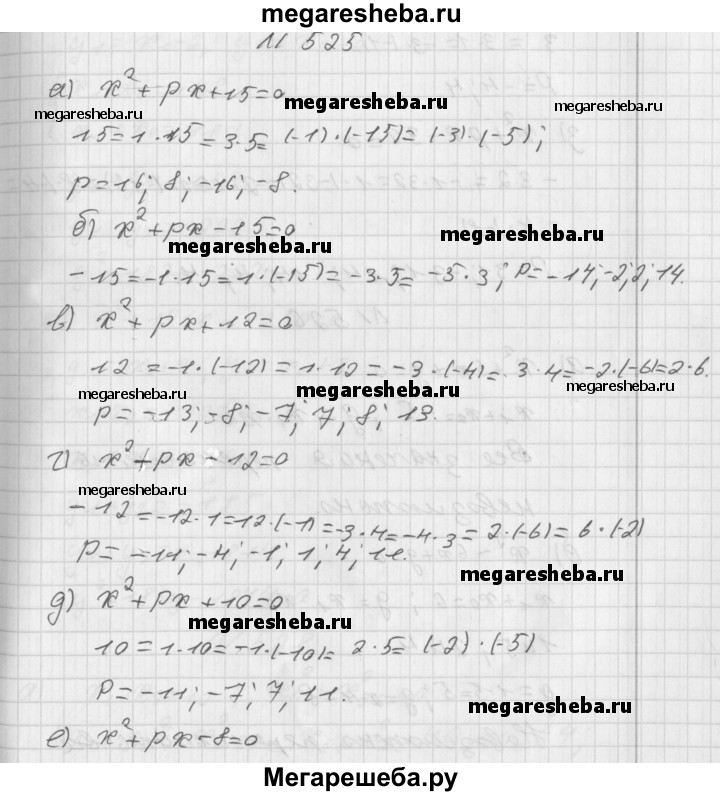 megaresheba.ru
N 525
а) x² + px + 15 = 0
megaresheba.ru megaresheba.ru
15 = 1 · 15 = 3 · 5 = (-1) · (-15) = (-3) · (-5);
p = 16; 8; -16; -8.
б) x² + px - 15 = 0
megaresheba.ru megaresheba.ru
-15 = -1 · 15 = 1 · (-15) = -3 · 5 = -5 · 3; p = -14; -2; 2; 14.
в) x² + px + 12 = 0
12 = -1 · (-12) = 1 · 12 = -3 · (-4) = 3 · 4 = -2 · (-6) = 2 · 6.
megaresheba.ru megaresheba.ru megaresheba.ru
p = -13; -8; -7; 7; 8; 13.
г) x² + px - 12 = 0
megaresheba.ru
-12 = -12 · 1 = 12 · (-1) = -3 · 4 = -4 · 3 = 2 · (-6) = 6 · (-2)
p = -11; -4; -1; 1; 4; 11.
megaresheba.ru
д) x² + px + 10 = 0
megaresheba.ru
10 = 1 · 10 = -1 · (-10) = 2 · 5 = (-2) · (-5)
p = -11; -7; 7; 11.
megaresheba.ru
е) x² + px - 8 = 0
Мегарешеба.ру